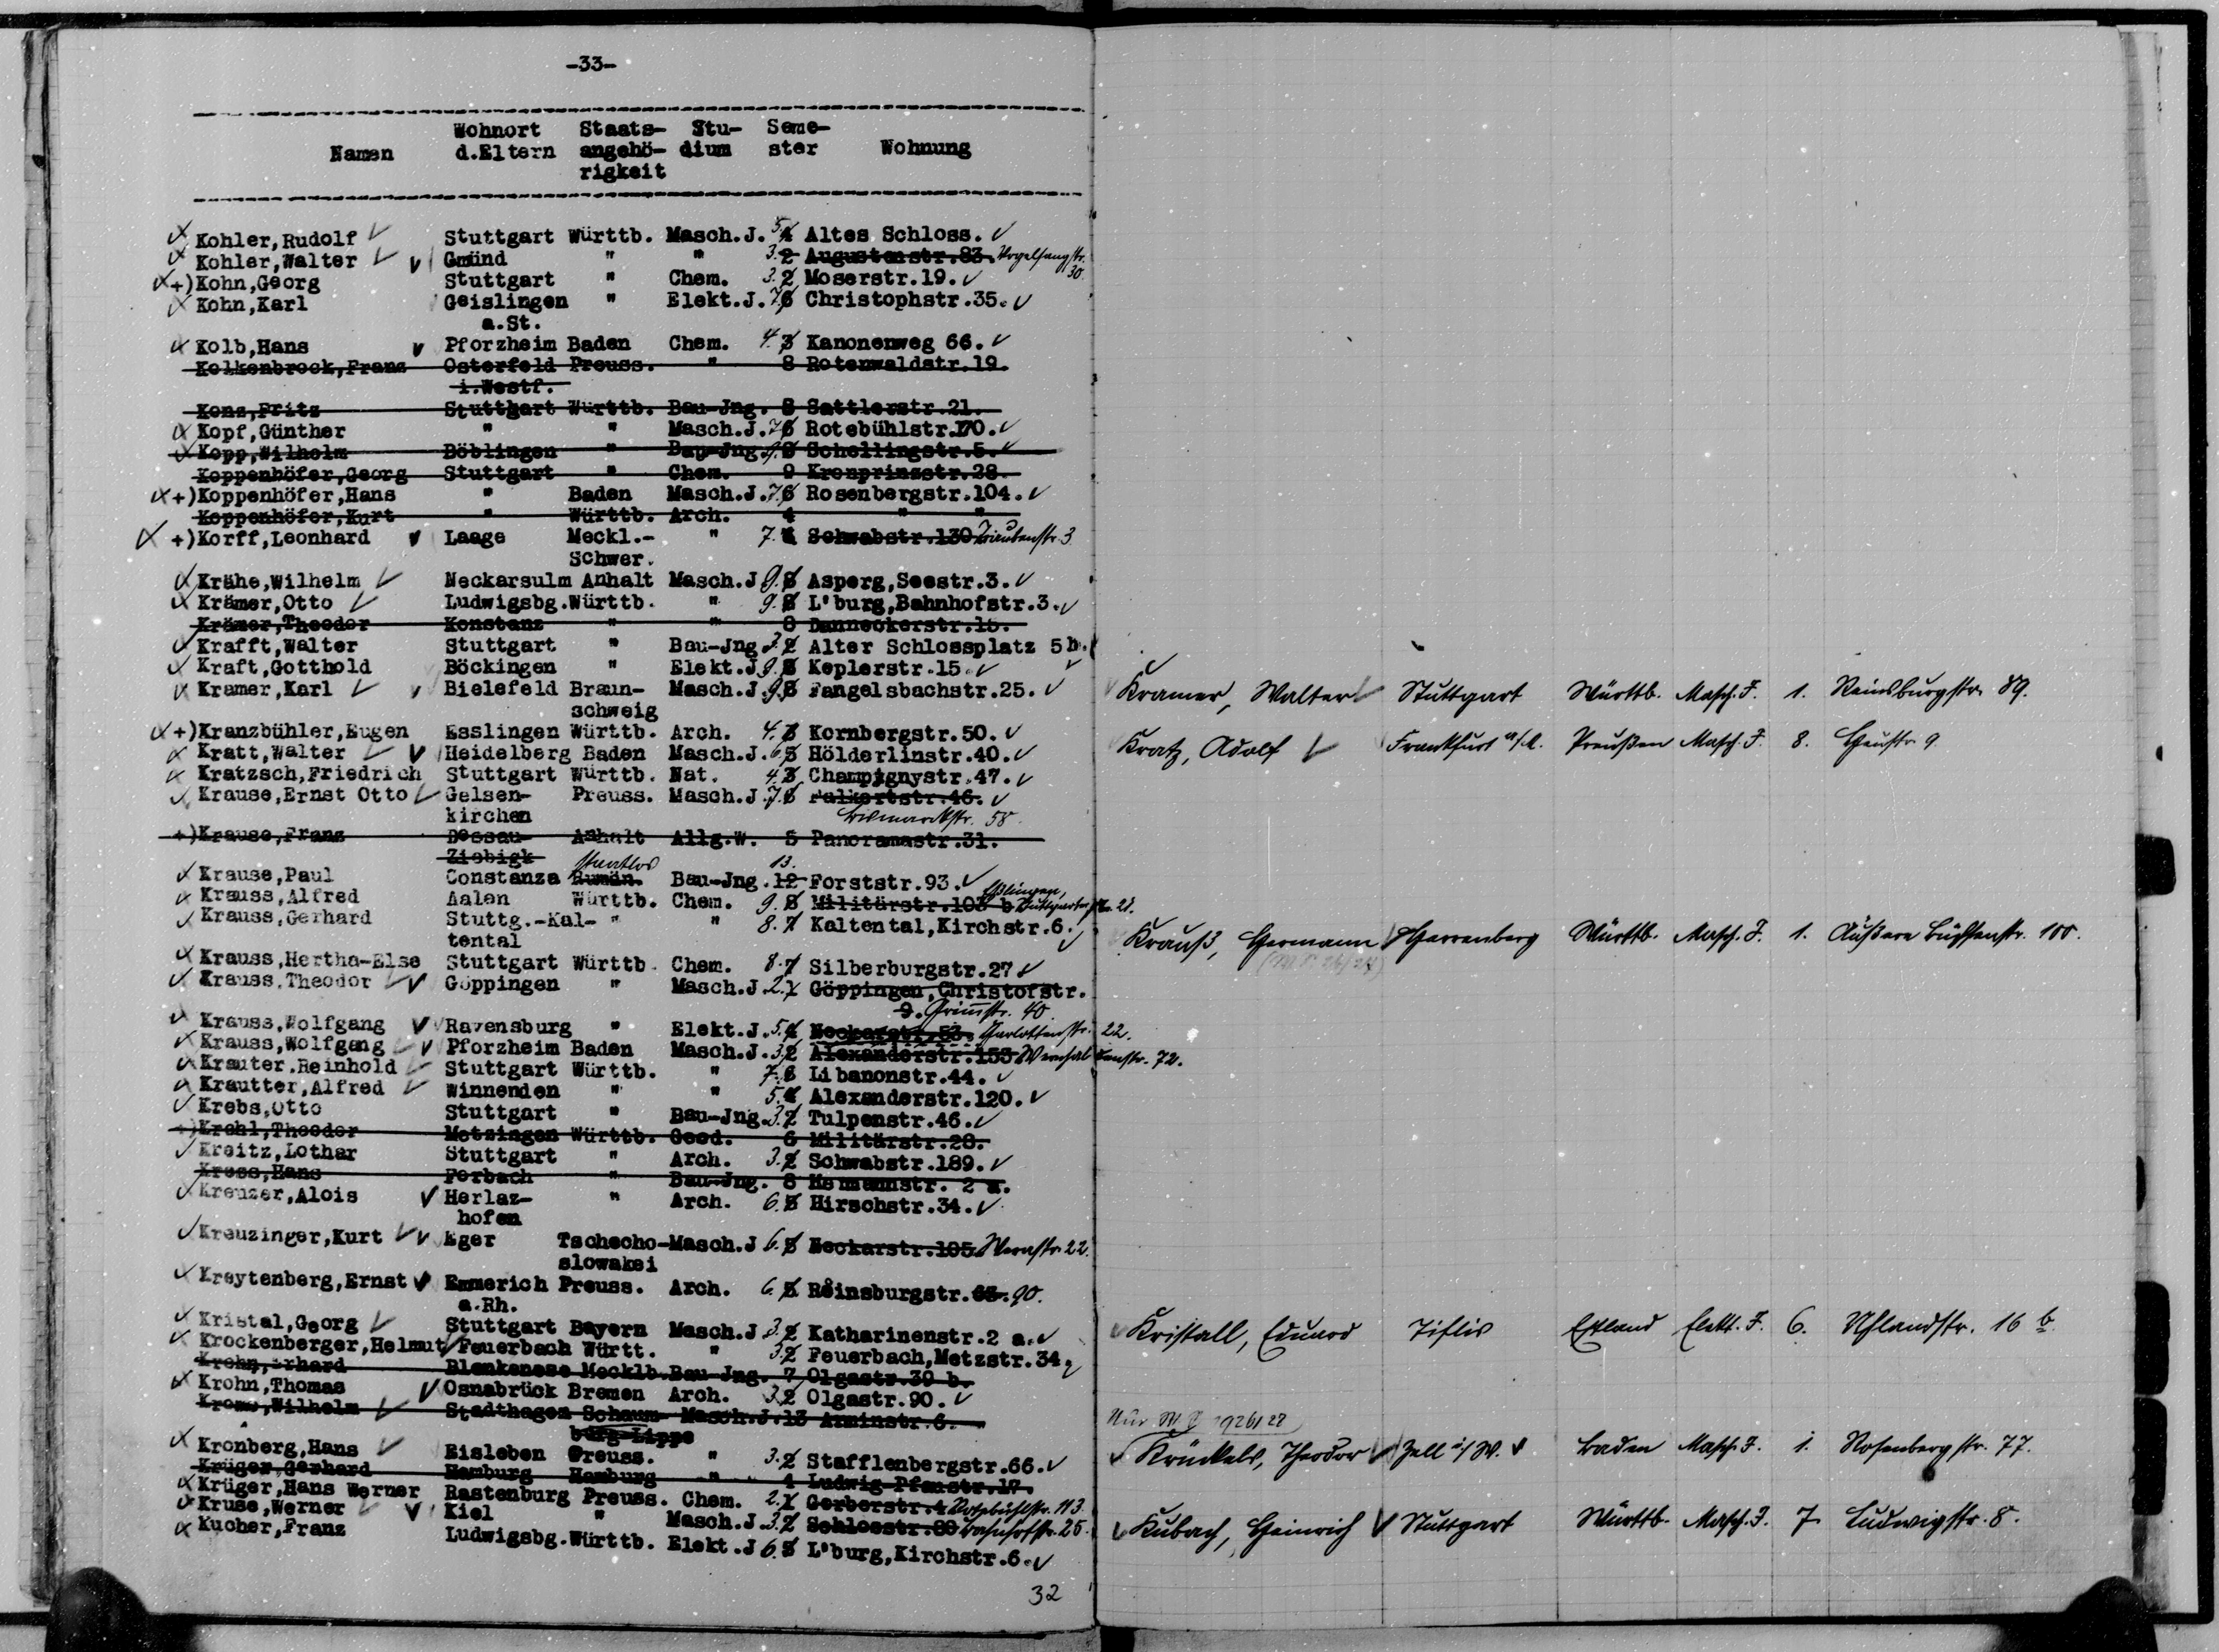 -33-
Wohnort Staats- Stu- Seme-
Namen d.Eltern angehö- dium ster Wohnung
rigkeit
Kohler,Rudolf Stuttgart Württb. Masch.J. 5. 4 Altes Schloss.
Kohler,Walter Gmünd " " 3. 2 Augustenstr.83. Vogelsangstr.
30.
+)Kohn,Georg Stuttgart " Chem. 3. 2 Moserstr.19.
Kohn,Karl Geislingen " Elekt.J. 7. 6 Christophstr.35.
a.St.
Kolb,Hans Pforzheim Baden Chem. 4. 3 Kanonenweg 66.
Kolkenbrock,Franz Osterfeld Preuss. " 8 Rotenwaldstr.19.
i.Westf.
Konz,Fritz Stuttgart Württb. Bau-Jng. 8 Sattlerstr.21.
Kopf,Günther " " Masch.J. 7. 6 Rotebühlstr.170.
Kopp,Wilhelm Böblingen " Bau-Jng. 9. 8 Schellingstr.5.
Koppenhöfer,Georg Stuttgart " Chem. 9 Kronprinzstr.28.
+)Koppenhöfer,Hans " Baden Masch.J. 7. 6 Rosenbergstr.104.
Koppenhöfer,Kurt " Württb. Arch. 4 " "
+)Korff,Leonhard Laage Meckl.- " 7. Schwabstr.130 Traubenstr. 3
Schwer.
Krähe,Wilhelm Neckarsulm Anhalt Masch.J 9. 8 Asperg,Seestr.3.
Krämer,Otto Ludwigsbg.Württb. " 9. 8 L'burg,Bahnhofstr.3.
Krämer,Theodor Konstanz " " 8 Danneckerstr.15.
Krafft,Walter Stuttgart " Bau-Jng. 3. 2 Alter Schlossplatz 5b.
Kraft,Gotthold Böckingen " Elekt.J. 9. 8 Keplerstr.15.
Kramer,Karl Bielefeld Braun- Masch.J. 9. 8 Fangelsbachstr.25.
schweig
+)Kranzbühler,Eugen Esslingen Württb. Arch. 4. 3 Kornbergstr.50.
Kratt,Walter Heidelberg Baden Masch.J. 6. 5 Hölderlinstr.40.
Kratzsch,Friedrich Stuttgart Württb. Nat. 4. 3 Champignystr.47.
Krause,Ernst Otto Gelsen- Preuss. Masch.J. 7. 6 Falkertstr.46.
kirchen Bismarckstr. 58.
+)Krause,Franz Dessau- Anhalt Allg.W. 5 Panoramastr.31.
Ziebigk Staatlos 13.
Krause,Paul Constanza Rumän. Bau-Jng. 12 Forststr.93.
Krauss,Alfred Aalen Württb. Chem. 9. 8 Militärstr.103 b Eßlingen, Stuttgarterstr. 21.
Krauss,Gerhard Stuttg.-Kal- " " 8. 7 Kaltental,Kirchstr.6.
tental
Krauss,Hertha-Else Stuttgart Württb. Chem. 8. 7 Silberburgstr.27
Krauss,Theodor Göppingen " Masch.J. 2. 1 Göppingen,Christofstr.
9. Grimmstr. 40.
Krauss,Wolfgang Ravensburg " Elekt.J. 5. 4 Neckarstr.53. Charlottenstr. 22.
Krauss,Wolfgang Pforzheim Baden Masch.J. 3. 2 Alexanderstr.153 Wernhaldenstr. 72.
Krauter,Reinhold Stuttgart Württb. " 7. 6 Libanonstr.44.
Krautter,Alfred Winnenden " " 5. 4 Alexanderstr.120.
Krebs,Otto Stuttgart " Bau-Jng. 3. 2 Tulpenstr.46.
+)Krehl,Theodor Metzingen Württb. Geod. 6 Militärstr.28.
Kreitz,Lothar Stuttgart " Arch. 3. 2 Schwabstr.189.
Kress,Hans Forbach " Bau-Jng. 8 2 a.
Kreuzer,Alois Herlaz- " Arch. 6. 5 Hirschstr.34.
hofen
Kreuzinger,Kurt Eger Tschecho-Masch.J 6. 5 Neckarstr.105 Werastr. 22.
slowakei
Kreytenberg,Ernst Emmerich Preuss. Arch. 6. 5 Reinsburgstr.63. 90.
a.Rh.
Kristal,Georg Stuttgart Bayern Masch.J. 3. 2 Katharinenstr.2 a.
Krockenberger,Helmut Feuerbach Württ. " 3. 2 Feuerbach,Metzstr.34.
Krohn,Erhard Blankenese Mecklb.Bau-Jng. 7 Olgastr.39 b.
Krohn,Thomas Osnabrück Bremen Arch. 3. 2 Olgastr.90.
Krome,Wilhelm Stadthagen Schaum- Masch.J.13 Arminstr.6.
burg-Lippe
Kronberg,Hans Eisleben Preuss. " 3. 2 Stafflenbergstr.66.
Krüger,Gerhard Hamburg Hamburg " 4 Ludwig-Pfaustr.17.
Krüger,Hans Werner Rastenburg Preuss. Chem. 2. 1 Gerberstr.4 Rotebühlstr. 113.
Kruse,Werner Kiel " Masch.J. 3. 2 Schlossstr.80 Bahnhofstr. 25.
Kucher,Franz Ludwigsbg.Württb. Elekt.J 6. 5 L'burg,Kirchstr.6.
32
Kramer, Walter Stuttgart Württb. Masch. J. 1. Reinsburgstr. 89.
Kratz, Adolf Frankfurt a/M. Preußen Masch. J. 8. Heustr. 9
Krauß, Hermann Herrenberg Württb. Masch. J. 1. Äußere Büchsenstr. 100.
Kristall, Eduard Tiflis Estland Elekt. J. 6. Uhlandstr. 16 b
Nur W.S. 1926/27
Krückels, Theodor Zell i/W. Baden Masch. J. 1. Rosenbergstr. 77.
Kubach, Heinrich Stuttgart Württb. Masch. J. 7 Ludwigstr. 8.